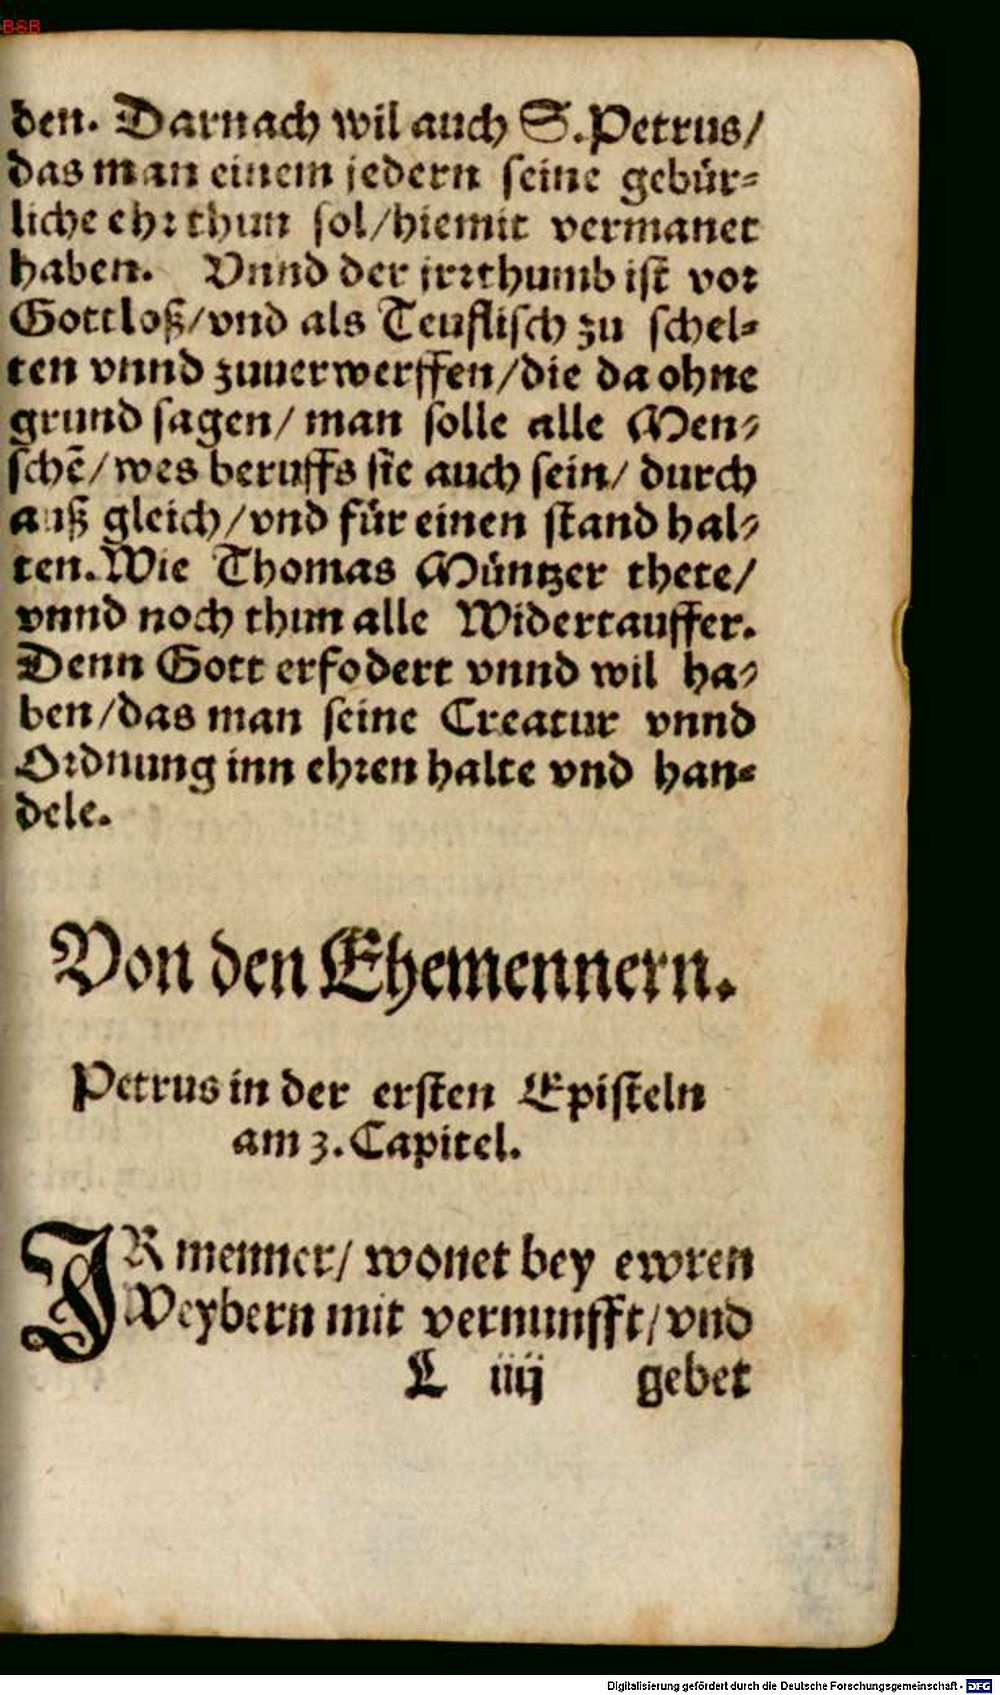 BSB
den. Darnach wil auch S. Petrus/
das man einem jedern seine gebür-
liche ehr thun sol/hiemit vermanet
haben. Vnnd der jrrthumb ist vor
Gottloß/vnd als Teuflisch zu schel-
ten vnnd zuuerwerffen/die da ohne
grund sagen/ man solle alle Men-
schē/wes beruffs sie auch sein/ durch
auß gleich/vnd für einen stand hal-
ten. Wie Thomas Müntzer thete/
vnnd noch thun alle Widertauffer.
Denn Gott erfodert vnnd wil ha-
ben/das man seine Creatur vnnd
Ordnung inn ehren halte vnd han-
dele.
Von den Ehemennern.
Petrus in der ersten Episteln
am 3. Capitel.
JR menner/ wonet bey ewren
Weybern mit vernunfft/vnd
L iiij gebet
Digitalisierung gefördert durch die Deutsche Forschungsgemeinschaft - DFG